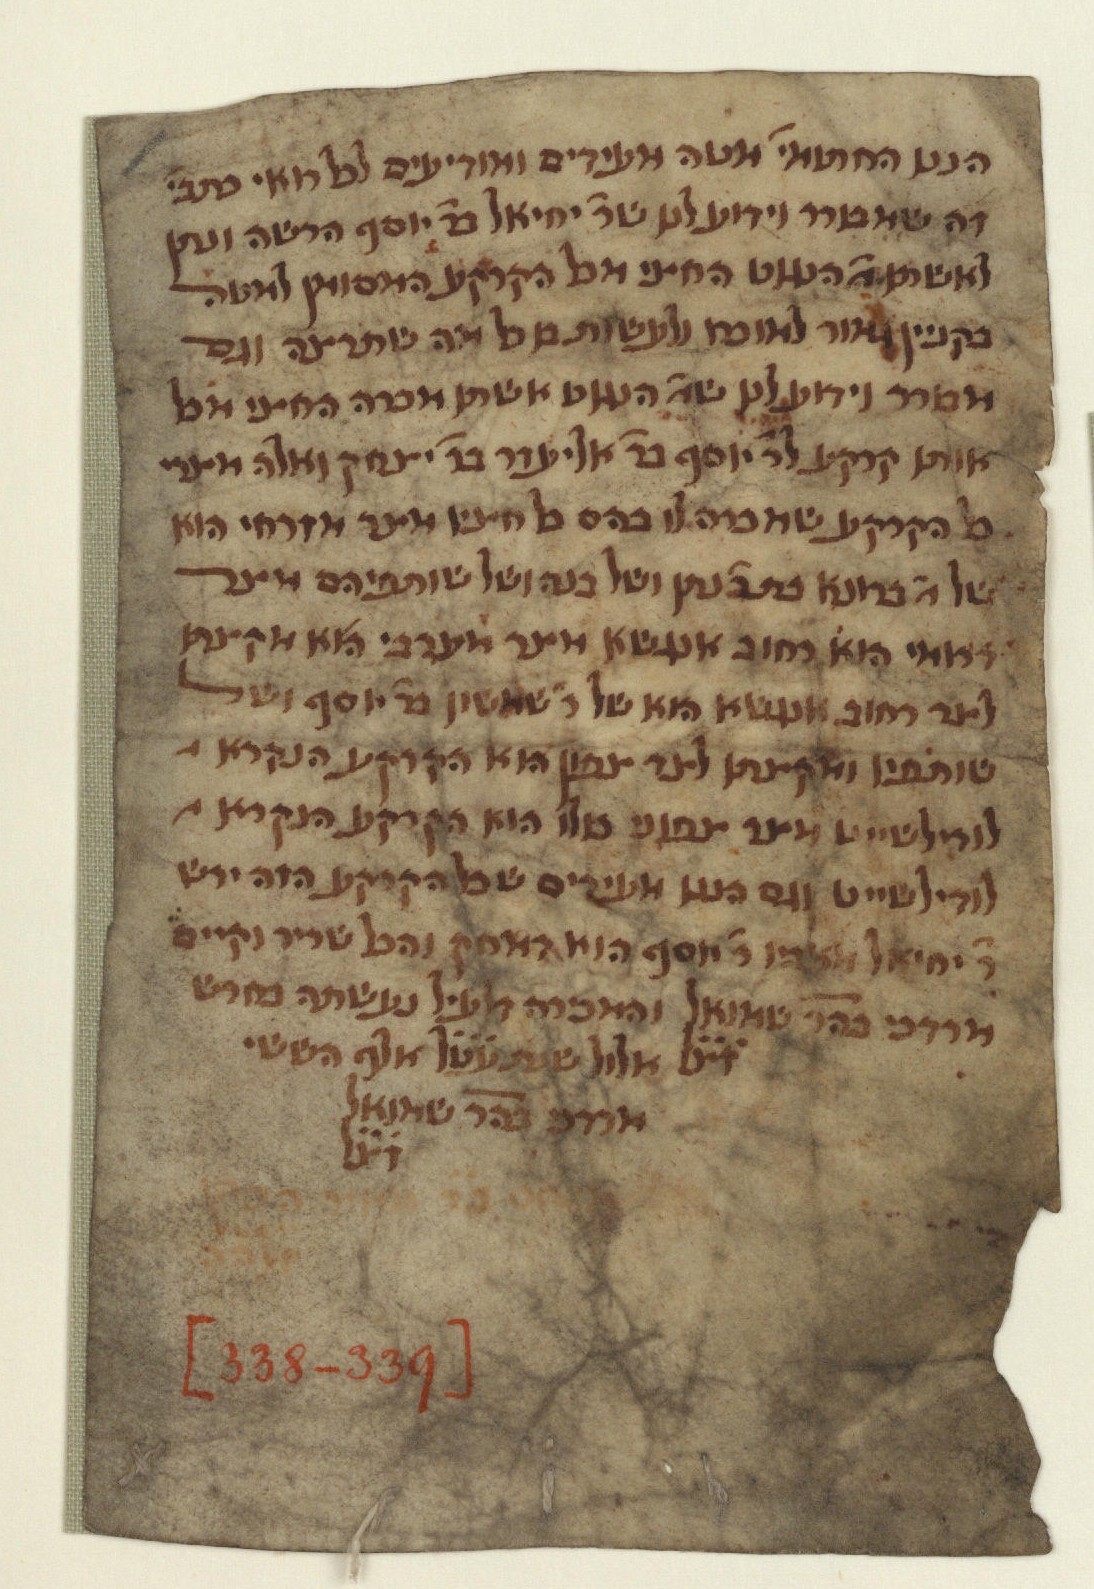 הננו החתומי' מטה מעידים ומודיעים לכל רואי כתבי
זה שמבורר וידוע לנו שר' יחיאל בר' יוסף הרשה ונתן
לאשתו מ' הענוט החיני מכל הקרקע המסויין למטה
בקניין גמור למוכרו ולעשות בו כל מה שתרצה וגם
מבורר וידוע לנו שמ' הענוט אשתו מכרה החיני מכל
אותו קרקע לר' יוסף בר' אליעזר בר' יצחק ואלה מצרי
כל הקרקע שמכרה לו בהם כל חינו מצר מזרחי הוא
של מ' ברונא בת ר' נתן ושל בנה ושל שותפיהם מצר
דרומי הוא רחוב אנגשא מצר מערבי הוא מקצתו
לצד רחוב אנגשא הוא של ר' שמשון בר' יוסף ושל
שותפיו ומקצתו לצד צפון הוא הקרקע הנקרא
לורילשייט מצד צפוני כולו הוא הקרקע הנקרא
לורילשייט וגם הננו מעידים שכל הקרקע הזה ירש
ר' יחיאל מאביו ר' יוסף הוא והכל שריר וקיים
מרדכי בהר שמואל והמכירה דלעיל נעשתה בחדש
זצ"ל אלול שנת אלף הששי
מרדכי בהר שמואל
זצ"ל
[338-339]